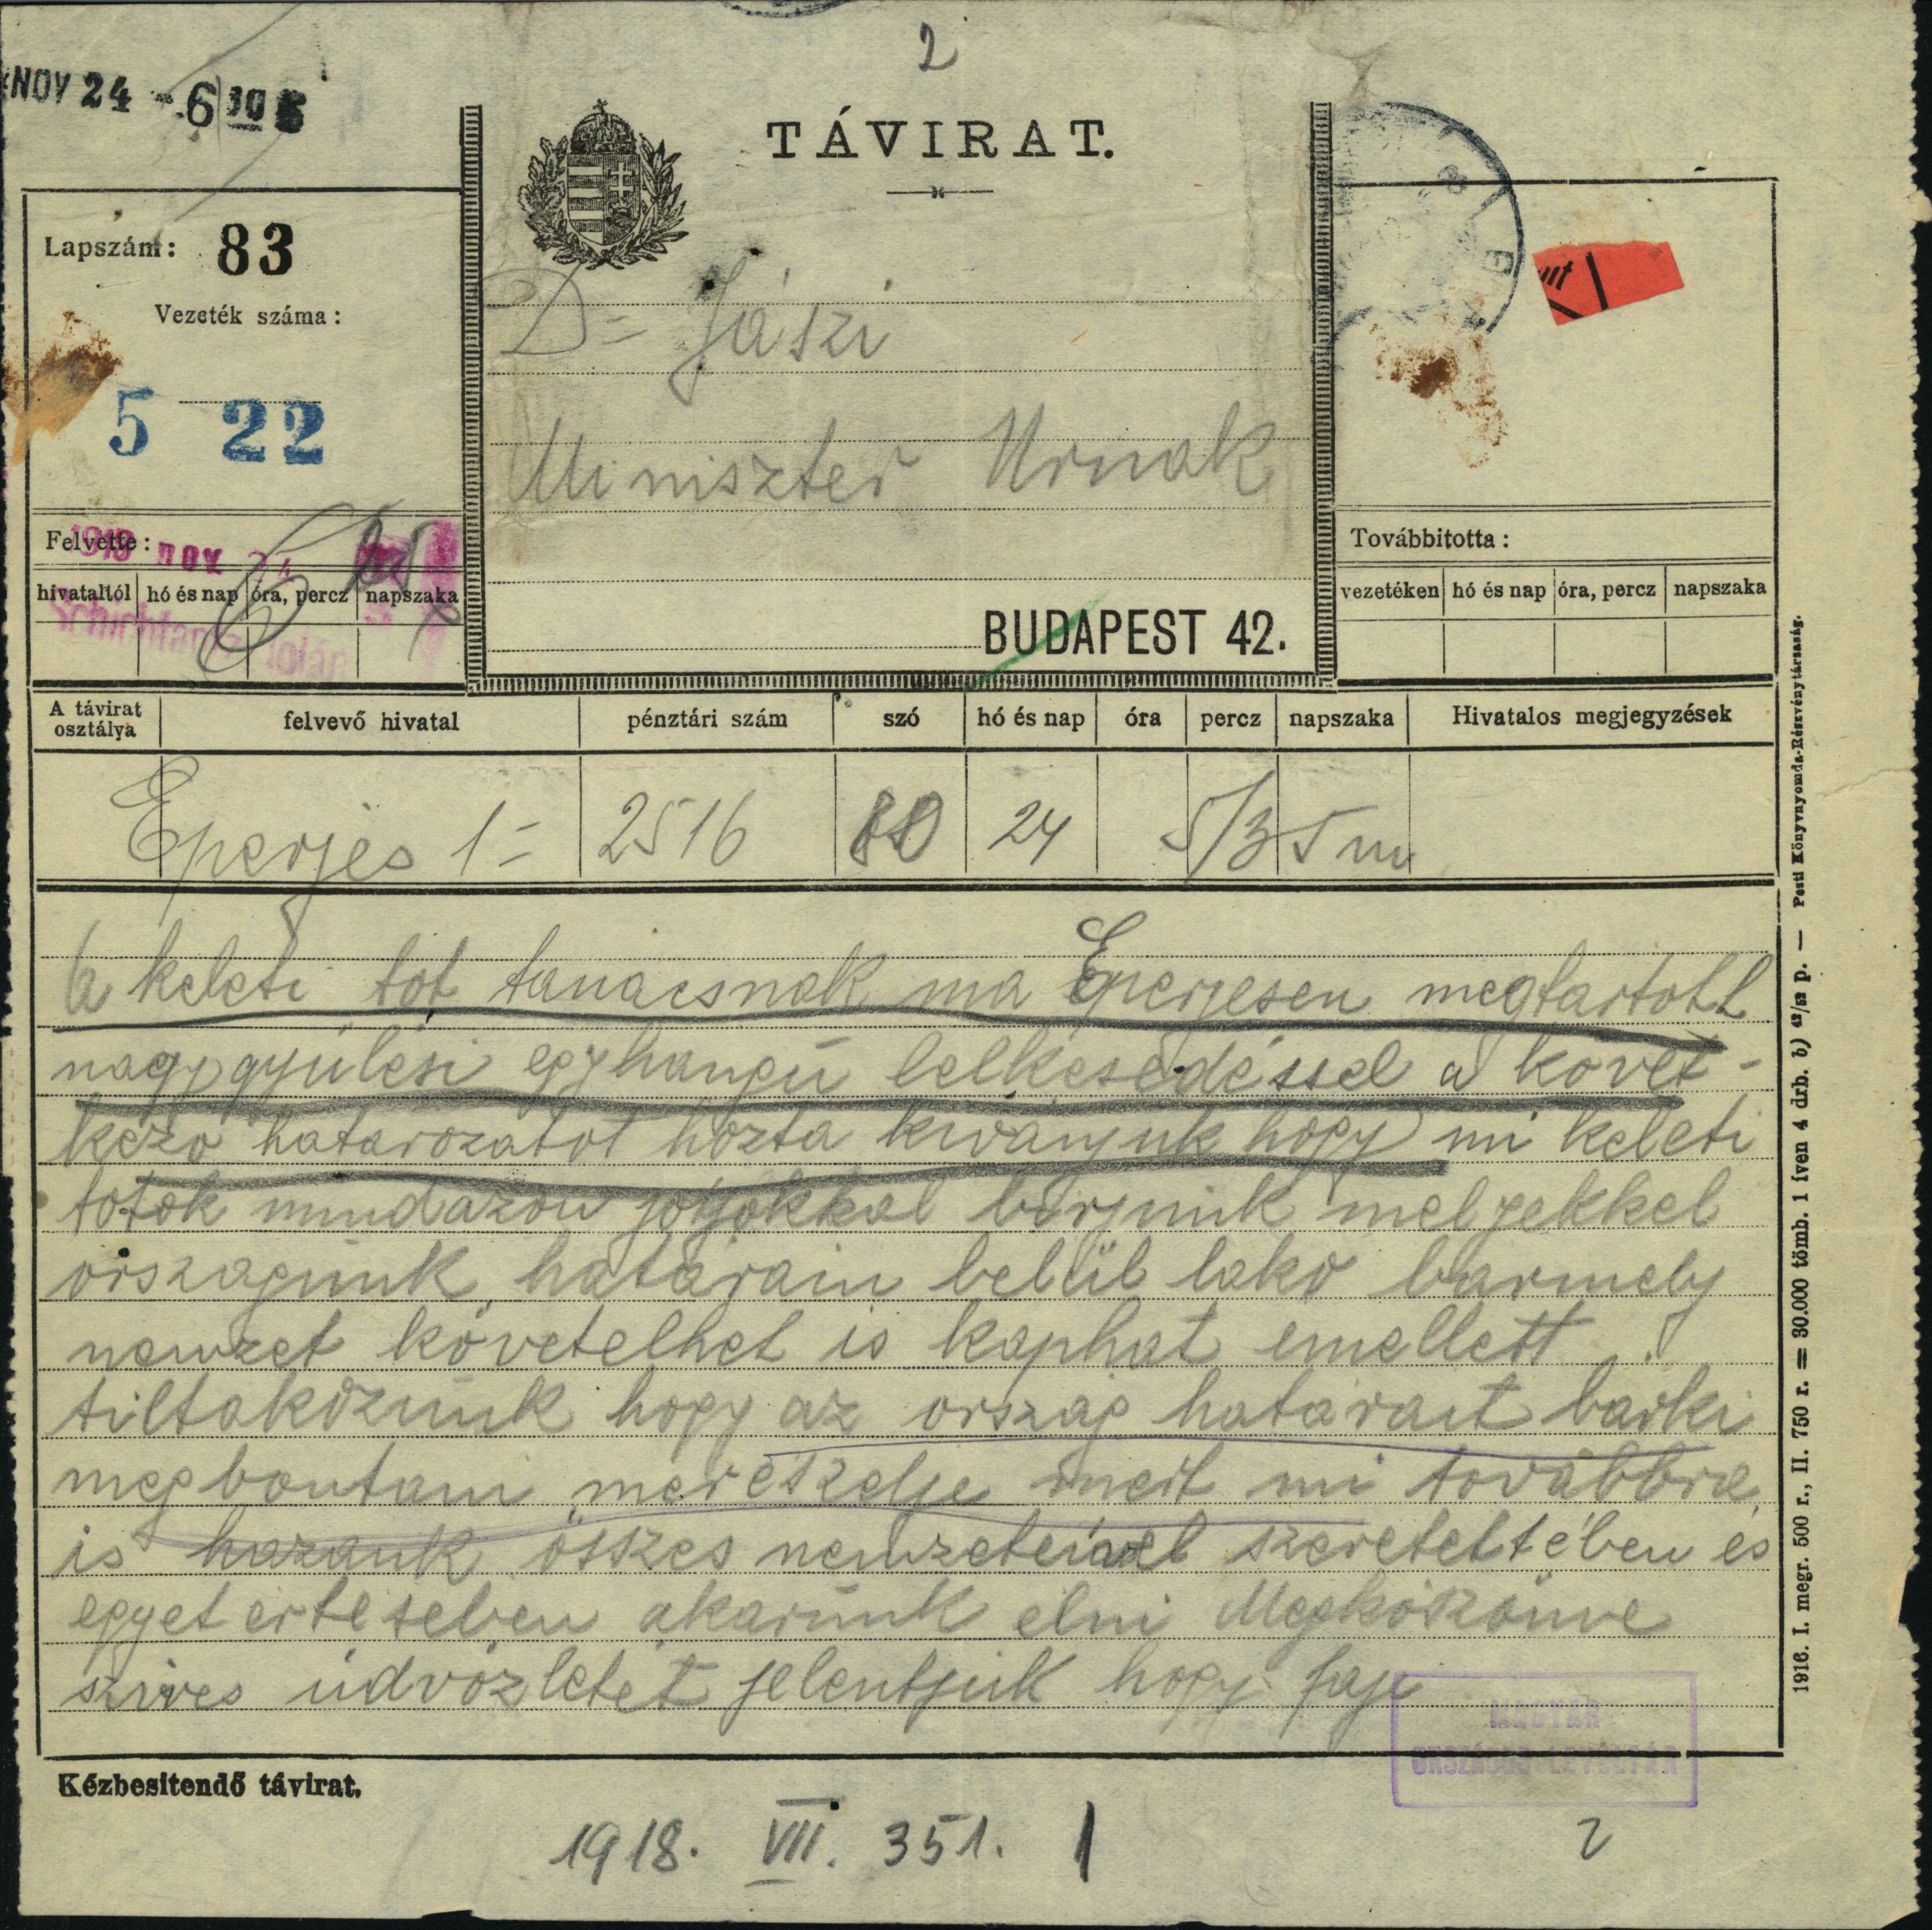 2
NOV 24 - 6 30
TÁVIRAT.
Lapszám: 83
Vezeték száma:
5 22
D= Jászi
Miniszter Urnak
BUDAPEST 42.
Felvette:
1918 nov 24
hivataltól hó és nap óra, percz napszaka
Továbbitotta:
vezetéken hó és nap óra, percz napszaka
A távirat osztálya felvevő hivatal pénztári szám szó hó és nap óra percz napszaka Hivatalos megjegyzések
Eperjes 1= 2516 80 24 5/35 m
A keleti tot tanacsnak ma Eperjesen megtartott
nagygyülési egyhangú lelkesedéssel a követ-
kező határozatot hozta kivánjuk hogy mi keleti
tótok mindazon jogokkal birjunk melyekkel
orszagunk határain belül lako barmely
nemzet követelhet is kaphat emellett
tiltakozunk hogy az ország határait barki
megbontani merészelje mert mi továbbra
is hazank összes nemzeteivel szeretettében és
egyetertesében akarunk elni Megköszönve
szives üdvözletét jelentjük hogy faji
Kézbesitendő távirat.
MAGYAR
ORSZÁGOS LEVÉLTÁR
1918. VII. 351. 1
2
1916. I. megr. 500 r., II. 750 r. = 30.000 tömb. 1 iven 4 drb. b) 42/53 p. — Pesti Könyvnyomda-Részvénytársaság.